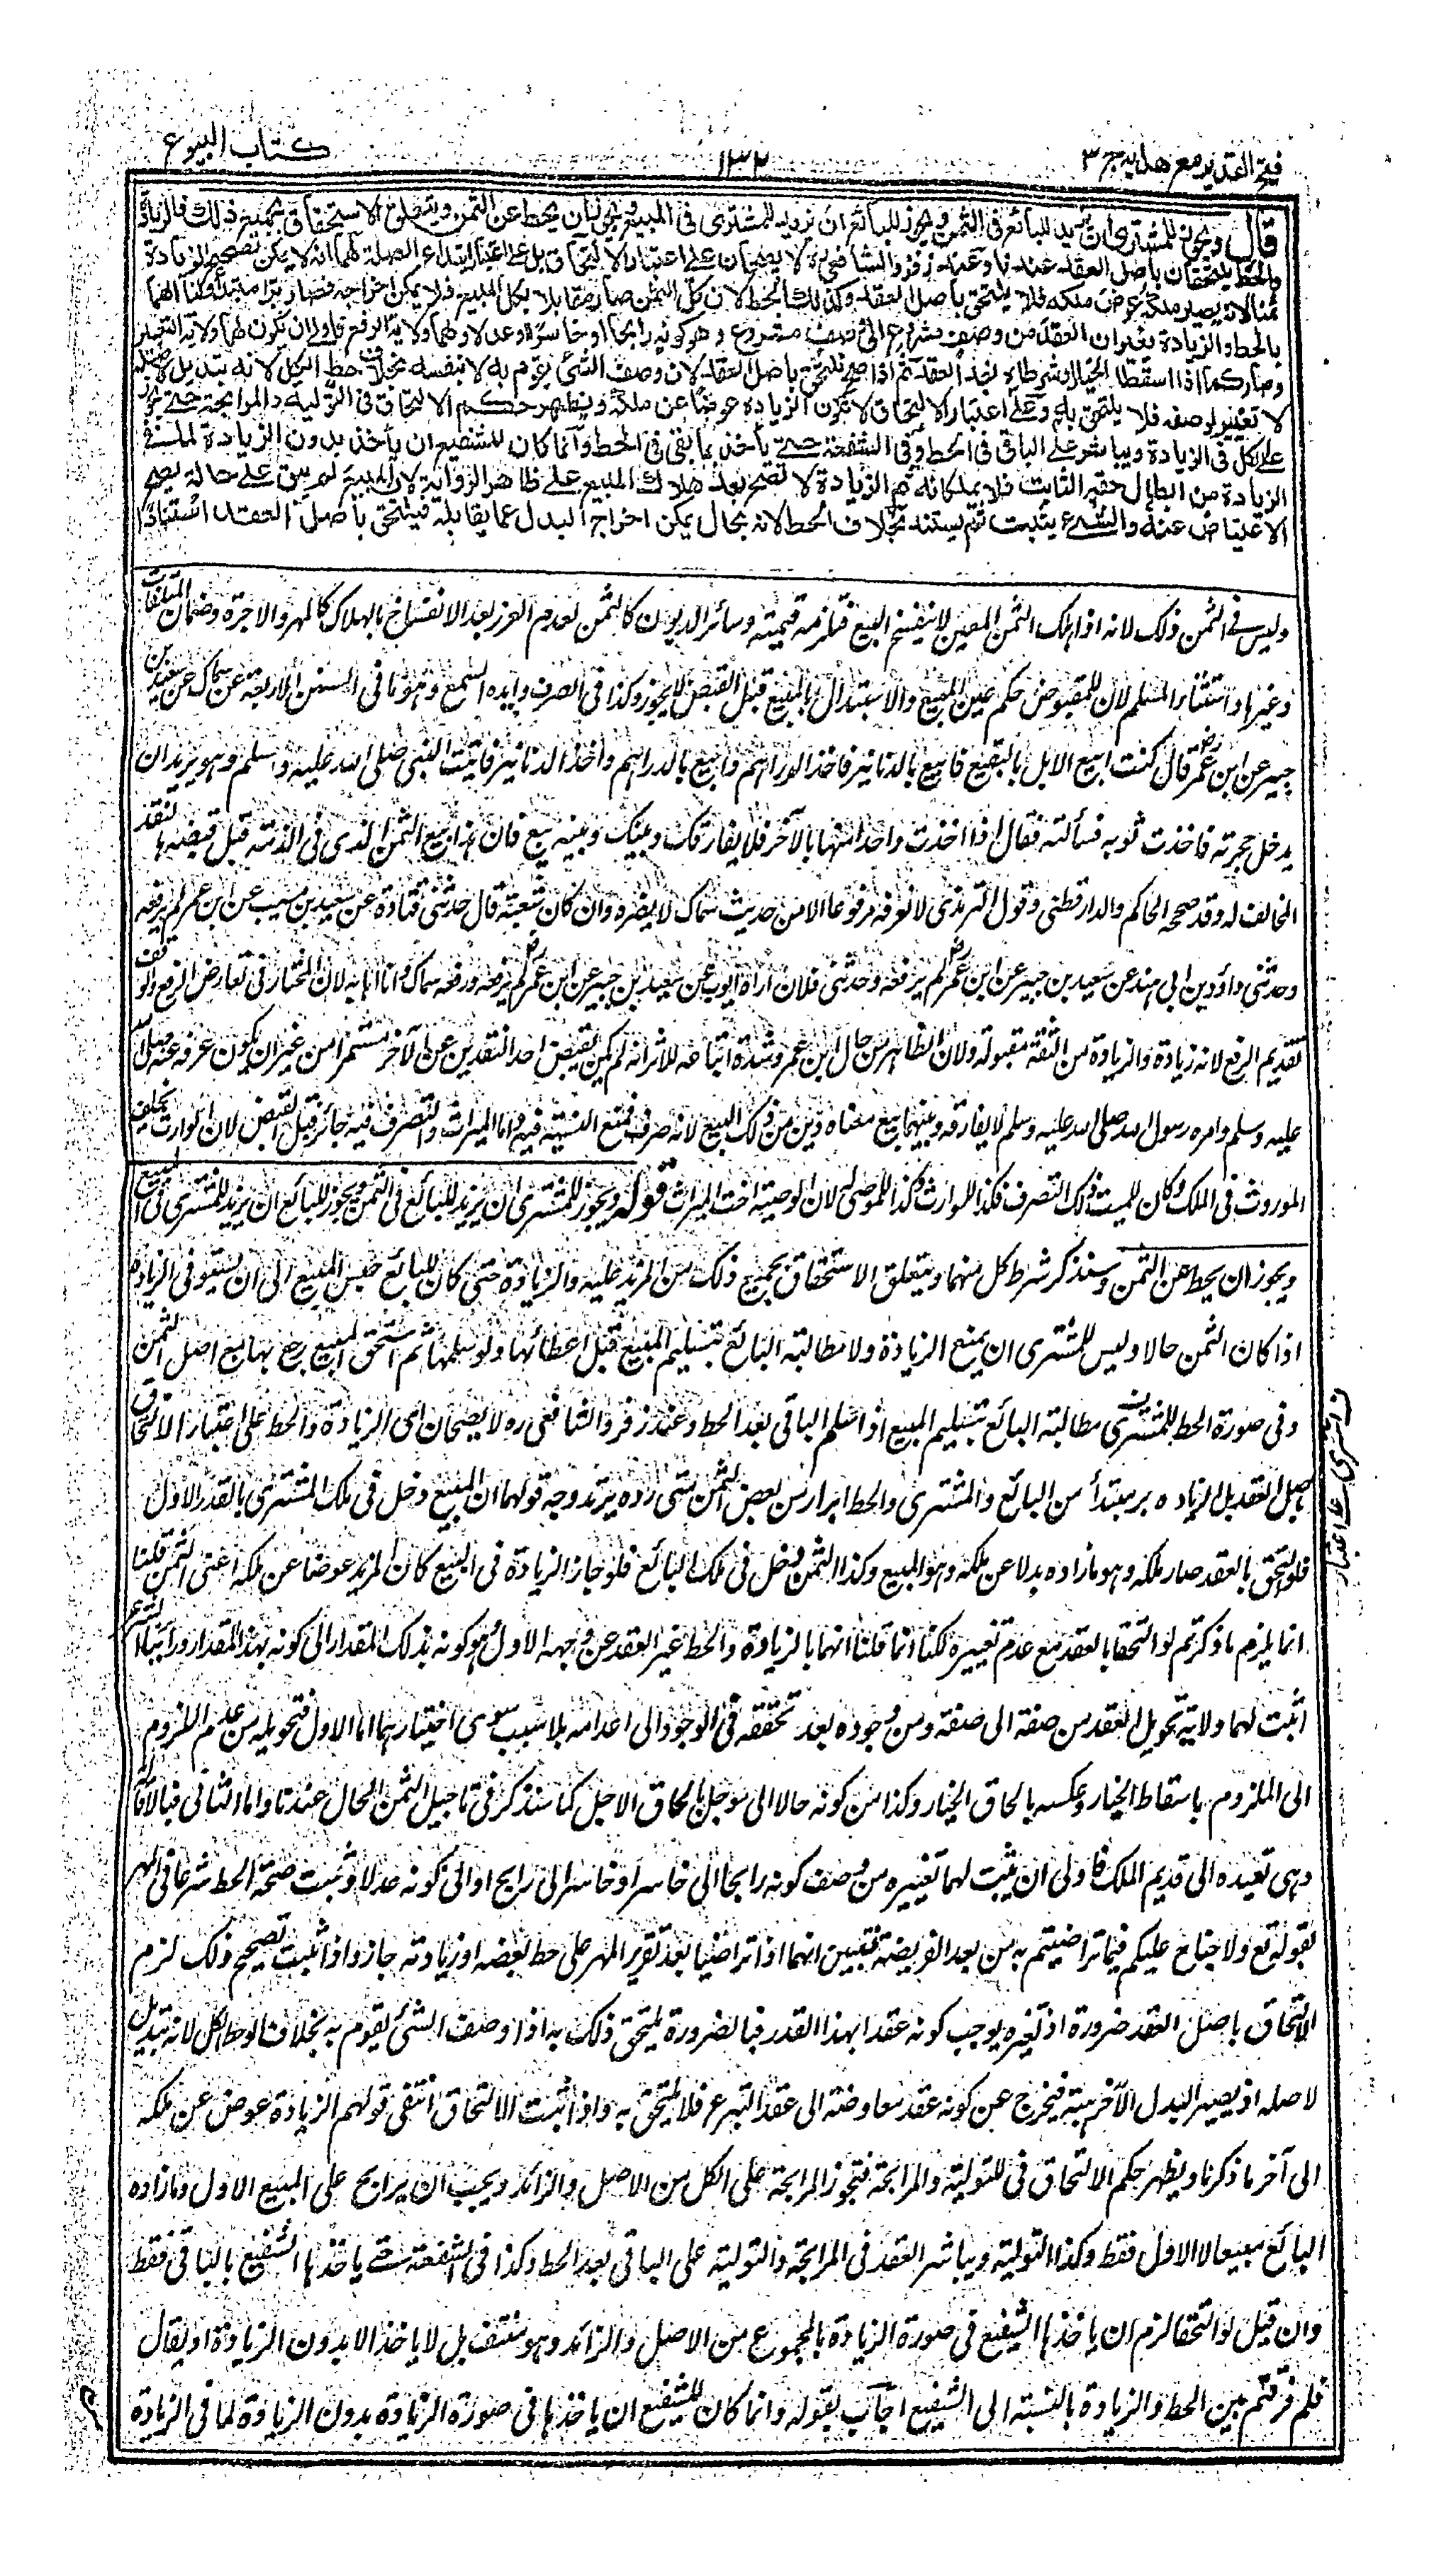 فتح القدير مع هدايه ج ٣
١٣٢
كتاب البيوع
قال ويجوز للمشترى ان يزيد للبائع فى الثمن ويجوز للبائع ان يزيد للمشترى فى المبيع ويجوز ان يحط عن الثمن ويتعلق الاستحقاق بجميع ذلك فالزيادة
والحط يلتحقان باصل العقد عندنا وعند زفر والشافعى ره لا يصحان على اعتبار الالتحاق بل على اعتبار ابتداء الصلة لهما انه لا يمكن تصحيح الزيادة
ثمنا لانه يصير ملكه عوض ملكه فلا يلتحق باصل العقد وكذلك الحط لان كل الثمن صار مقابلا بكل المبيع فلا يمكن اخراجه فصار برا مبتدأ ولنا انهما
بالحط والزيادة يغيران العقد من وصف مشروع الى وصف مشروع وهو كونه رابحا او خاسرا او عدلا ولهما ولاية الرفع فاولى ان يكون لهما ولاية التغيير
وصار كما اذا اسقطا الخيار او شرطاه بعد العقد ثم اذا صح يلتحق باصل العقد لان وصف الشئ يقوم به لا بنفسه بخلاف حط الكل لانه تبديل لاصله
لا تغيير لوصفه فلا يلتحق به وعلى اعتبار الالتحاق لا تكون الزيادة عوضا عن ملكه ويظهر حكم الالتحاق فى التولية والمرابحة حتى يجوز
على الكل فى الزيادة ويباشر على الباقى فى الحط وفى الشفعة حتى يأخذ بما بقى فى الحط وانما كان للشفيع ان يأخذ بدون الزيادة لما فى
الزيادة من ابطال حقه الثابت فلا يملكانه ثم الزيادة لا تصح بعد هلاك المبيع على ظاهر الرواية لان المبيع لم يبق على حالة يصح
الاعتياض عنه والشئ يثبت ثم يستند بخلاف الحط لانه بحال يمكن اخراج البدل عما يقابله فيلتحق باصل العقد استنادا
وليس فى الثمن ذلك لانه اذا هلك الثمن المعين لا ينفسخ البيع فتلزمه قيمته وسائر الديون كالثمن لعدم الغرر بعد الانفساخ بالهلاك كالمهر والاجرة وضمان المتلفات
وغيرها واستثناء المسلم لان للمقبوض حكم عين المبيع والاستبدال بالمبيع قبل القبض لا يجوز وكذا فى الصرف وايده السمع وهو ما فى السنن الاربعة عن سماك عن سعيد بن
جبير عن ابن عمر رض قال كنت ابيع الابل بالبقيع فابيع بالدنانير فاخذ الدراهم وابيع بالدراهم واخذ الدنانير فاتيت النبى صلى الله عليه وسلم وهو يريد ان
يدخل حجرته فاخذت ثوبه فسألته فقال اذا اخذت واحدا منها بالآخر فلا يفارقك وبينك وبينه بيع فان هذا بيع الثمن الذى فى الذمة قبل قبضه بالنقد
المخالف له وقد صححه الحاكم والدارقطنى وقول الترمذى لا نعرفه مرفوعا الا من حديث سماك لا يضره وان كان شعبة قال حدثنى قتادة عن سعيد بن مسيب عن ابن عمر لم يرفعه
وحدثنى داؤد بن ابى هند عن سعيد بن جبير عن ابن عمر رض لم يرفعه وحدثنى فلان اراه ايوب عن سعيد بن جبير عن ابن عمر رض لم يرفعه ورفعه سماك وانا اهابه لان المختار فى تعارض الرفع والوقف
تقديم الرفع لانه زيادة والزيادة من الثقة مقبولة ولان الظاهر من حال ابن عمر وشدة اتباعه للاثر انه لم يكن يقبض احد النقدين عن الآخر مستمرا من غير ان يكون عرفه عنه صلى الله
عليه وسلم وامره رسول الله صلى الله عليه وسلم لا يفارقه وبينهما بيع معناه دين من ذلك البيع لانه صرف فمنع النسيئة فيه واما الميراث والتصرف فيه جائز قبل القبض لان الوارث يخلف
الموروث فى الملك وكان للميت ذلك التصرف فكذا للوارث وكذا للموصى له لان الوصية اخت الميراث قوله ويجوز للمشترى ان يزيد للبائع فى الثمن ويجوز للبائع ان يزيد للمشترى فى المبيع
ويجوز ان يحط عن الثمن وسنذكر شرط كل منهما ويتعلق الاستحقاق بجميع ذلك من المزيد عليه والزيادة حتى كان للبائع حبس المبيع الى ان يستوفى الزيادة
اذا كان الثمن حالا وليس للمشترى ان يمنع الزيادة ولا مطالبة البائع بتسليم المبيع قبل اعطائها ولو سلمها ثم استحق المبيع رجع بها مع اصل الثمن
وفى صورة الحط للمشترى مطالبة البائع بتسليم المبيع اذا سلم الباقى بعد الحط وعند زفر والشافعى ره لا يصحان اى الزيادة والحط على اعتبار الالتحاق
باصل العقد بل الزيادة بر مبتدأ من البائع والمشترى والحط ابراء من بعض الثمن متى رده يرتد وجه قولهما ان المبيع دخل فى ملك المشترى بالقدر الاول
فلو التحق بالعقد صار ملكه وهو ما زاده بدلا عن ملكه وهو المبيع وكذا الثمن دخل فى ملك البائع فلو جاز الزيادة فى المبيع كان المزيد عوضا عن ملكه اعنى الثمن قلنا
انما يلزم ما ذكرتم لو التحقا بالعقد مع عدم تغييره لكنا انما قلنا انهما بالزيادة والحط غيرا العقد عن وجهه الاول وهو كونه بذلك المقدار الى كونه بهذا المقدار ورأينا الشرع
اثبت لهما ولاية تحويل العقد من صفة الى صفة ومن وجوده بعد تحققه فى الوجود الى اعدامه بلا سبب سوى اختيارهما اما الاول فتحويله من عدم اللزوم
الى اللزوم باسقاط الخيار وعكسه بالحاق الخيار وكذا من كونه حالا الى مؤجل بالحاق الاجل كما سنذكر فى تاجيل الثمن الحال عندنا واما الثانى فبالاقالة
وهى تعيده الى قديم الملك فاولى ان يثبت لهما تغييره من وصف كونه رابحا الى خاسر او خاسرا الى رابح او الى كونه عدلا وثبت صحة الحط شرعا فى المهر
بقوله تع ولا جناح عليكم فيما تراضيتم به من بعد الفريضة فتبين انهما اذا تراضيا بعد تقرير المهر على حط بعضه او زيادته جاز واذا ثبت تصحيح ذلك لزم
الالتحاق باصل العقد ضرورة اذ تغيره يوجب كونه عقدا بهذا القدر فبالضرورة يلتحق ذلك به اذ وصف الشئ يقوم به بخلاف ما لو حط الكل لانه تبديل
لاصله اذ يصير البدل الآخر هبة فيخرج عن كونه عقد معاوضة الى عقد التبرع فلا يلتحق به واذا ثبت الالتحاق انتفى قولهم الزيادة عوض عن ملكه
الى آخر ما ذكرنا ويظهر حكم الالتحاق فى التولية والمرابحة فتجوز المرابحة على الكل من الاصل والزائد ويجب ان يرابح على المبيع الاول وما زاده
البائع مبيعا لا الاول فقط وكذا التولية ويباشر العقد فى المرابحة والتولية على الباقى بعد الحط وكذا فى الشفعة حتى ياخذها الشفيع بالباقى فقط
وان قيل لو التحقا لزم ان ياخذها الشفيع فى صورة الزيادة بالمجموع من الاصل والزائد وهو منتف بل لا ياخذ الا بدون الزيادة او يقال
فلم فرقتم بين الحط والزيادة بالنسبة الى الشفيع اجاب بقوله وانما كان للشفيع ان ياخذها فى صورة الزيادة بدون الزيادة لما فى الزيادة